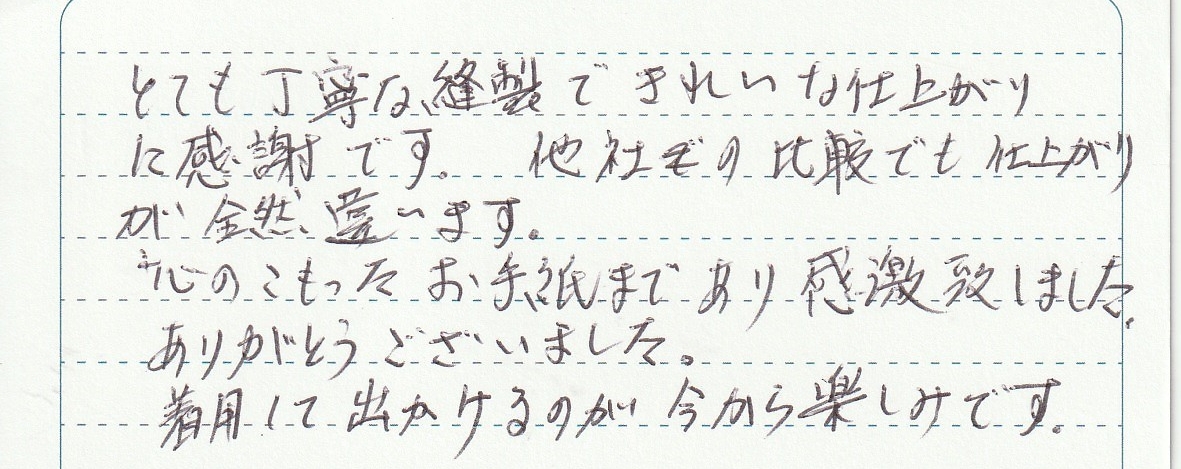 とても丁寧な縫製できれいな仕上がり
に感謝です。 他社との比較でも仕上がり
が全然違います。
心のこもったお手紙まであり感激致しました。
ありがとうございました。
着用して出かけるのが今から楽しみです。